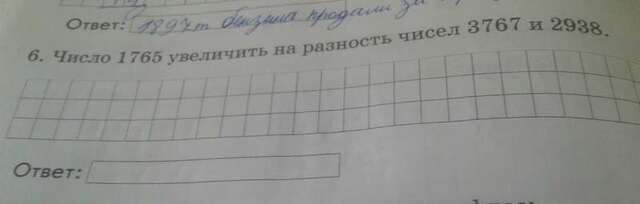 Ответ: 1897т бензина продали за
6. Число 1765 увеличить на разность чисел 3767 и 2938.
Ответ: